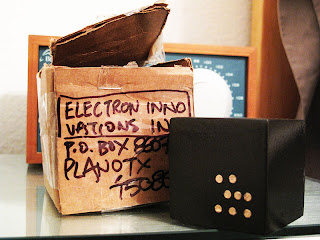 ELECTRON INNO
VATIONS IN
P.O. BOX
PLANO TX